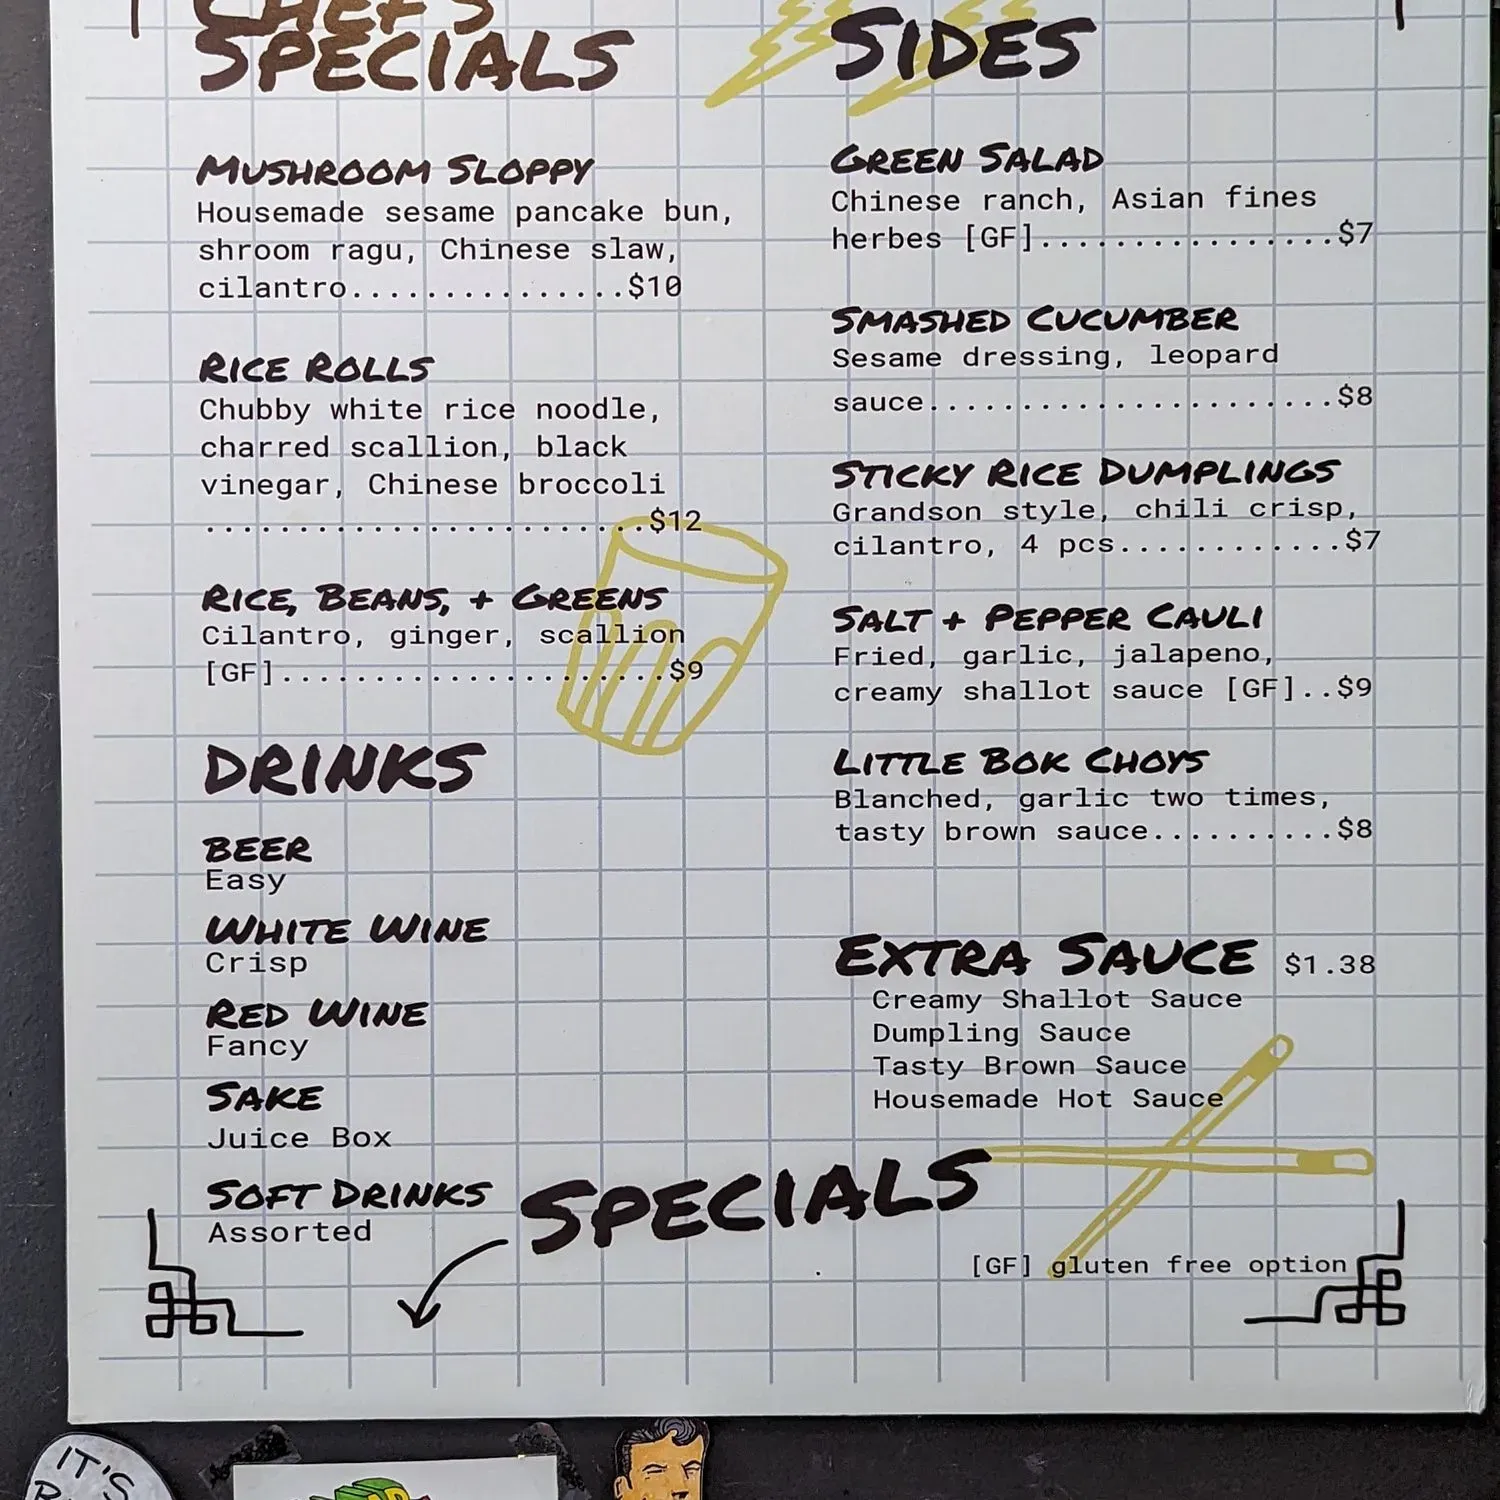 CHEF'S
SPECIALS
MUSHROOM SLOPPY
Housemade sesame pancake bun,
shroom ragu, Chinese slaw,
cilantro...............$10
RICE ROLLS
Chubby white rice noodle,
charred scallion, black
vinegar, Chinese broccoli
........................$12
RICE, BEANS, + GREENS
Cilantro, ginger, scallion
[GF].....................$9
DRINKS
BEER
Easy
WHITE WINE
Crisp
RED WINE
Fancy
SAKE
Juice Box
SOFT DRINKS
Assorted
SIDES
GREEN SALAD
Chinese ranch, Asian fines
herbes [GF]................$7
SMASHED CUCUMBER
Sesame dressing, leopard
sauce......................$8
STICKY RICE DUMPLINGS
Grandson style, chili crisp,
cilantro, 4 pcs............$7
SALT + PEPPER CAULI
Fried, garlic, jalapeno,
creamy shallot sauce [GF]..$9
LITTLE BOK CHOYS
Blanched, garlic two times,
tasty brown sauce..........$8
EXTRA SAUCE $1.38
Creamy Shallot Sauce
Dumpling Sauce
Tasty Brown Sauce
Housemade Hot Sauce
SPECIALS
[GF] gluten free option
IT'S